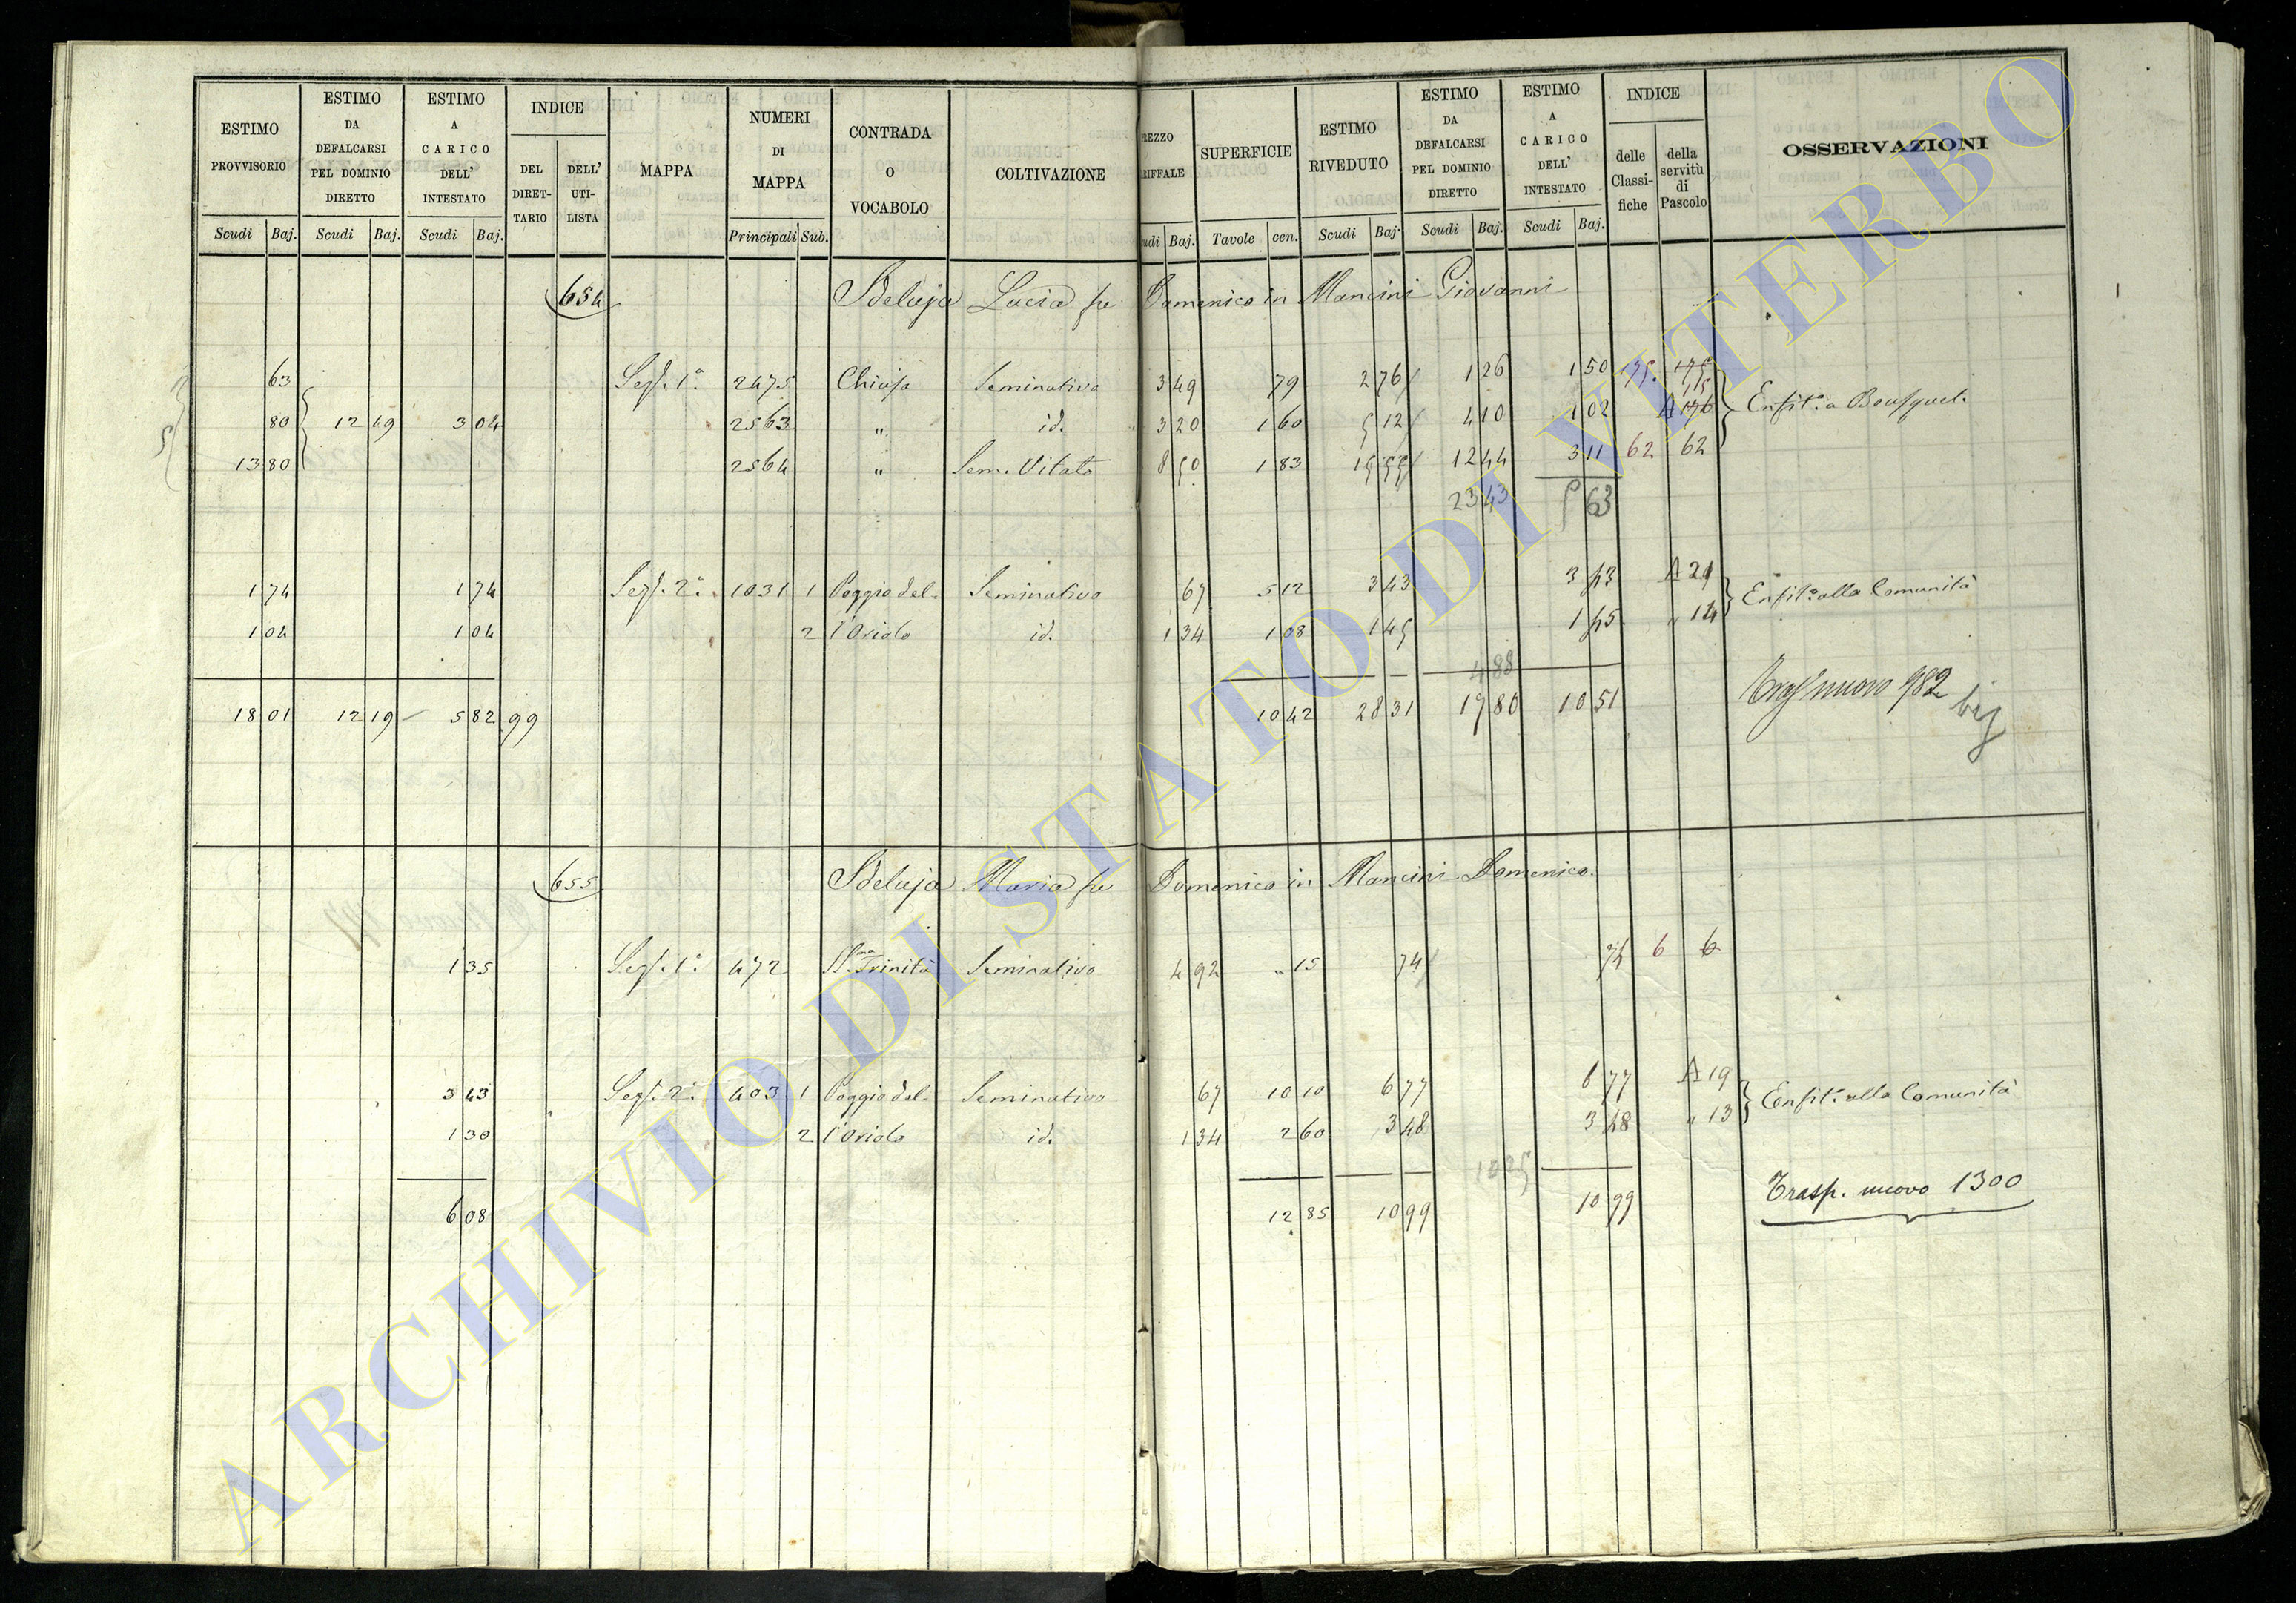 ESTIMO PROVVISORIO | ESTIMO DA DEFALCARSI PEL DOMINIO DIRETTO | ESTIMO A CARICO DELL' INTESTATO | INDICE | MAPPA | NUMERI DI MAPPA | CONTRADA O VOCABOLO | COLTIVAZIONE | REZZO RIFFALE | SUPERFICIE | ESTIMO RIVEDUTO | ESTIMO DA DEFALCARSI PEL DOMINIO DIRETTO | ESTIMO A CARICO DELL' INTESTATO | INDICE | OSSERVAZIONI
DEL DIRETTARIO | DELL' UTILISTA | delle Classifiche | della servitù di Pascolo
Scudi | Baj. | Scudi | Baj. | Scudi | Baj. | Principali | Sub. | udi | Baj. | Tavole | cen. | Scudi | Baj. | Scudi | Baj. | Scudi | Baj.
654 Lucia fu Domenico in Mancini Giovanni
63 | Sez. 1a | 2475 | Chiusa | Seminativo | 3 49 | 79 | 2 76 | 1 26 | 1 50 | 175
80 | 12 19 | 3 04 | 2563 | " | id. | 3 20 | 1 60 | 5 12 | 4 10 | 1 02 | Enfit. a Bousquet.
13 80 | 2564 | " | Sem. Vitato | 8 50 | 1 83 | 15 55 | 12 44 | 3 11 | 62 | 62
23 43 | 5 63
1 74 | 1 74 | Sez. 2a | 1031 | 1 | Poggio del | Seminativo | 67 | 5 12 | 3 43 | 3 43 | A 21 | Enfit. alla Comunità
1 04 | 1 04 | 2 | l'Oriolo | id. | 1 34 | 1 08 | 1 45 | 1 45 | " 14
4 88
18 01 | 12 19 | 5 82 99 | 10 42 | 28 31 | 17 80 | 10 51 | nuovo 982 bis
655 Maria fu Domenico in Mancini Domenico.
1 35 | Sez. 1a | 472 | SSma Trinità | Seminativo | 4 92 | " 15 | 74 | 74 | 6 | 6
3 43 | Sez. 2a | 403 | 1 | Poggio del | Seminativo | 67 | 10 10 | 6 77 | 6 77 | A 19 | Enfit. alla Comunità
1 30 | 2 | l'Oriolo | id. | 1 34 | 2 60 | 3 48 | 3 48 | " 13
10 25
6 08 | 12 85 | 10 99 | 10 99 | Trasp. nuovo 1300
ARCHIVIO DI STATO DI VITERBO